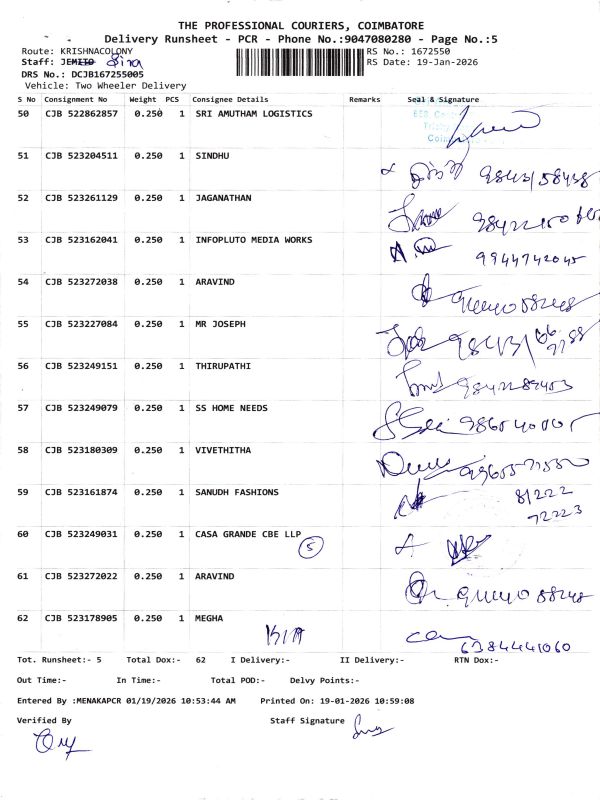 THE PROFESSIONAL COURIERS, COIMBATORE
Delivery Runsheet - PCR - Phone No.:9047080280 - Page No.:5
Route: KRISHNACOLONY
RS No.: 1672550
Staff: JEMITO Siva
RS Date: 19-Jan-2026
DRS No.: DCJB167255005
Vehicle: Two Wheeler Delivery
S No Consignment No Weight PCS Consignee Details Remarks Seal & Signature
50 CJB 522862857 0.250 1 SRI AMUTHAM LOGISTICS
51 CJB 523204511 0.250 1 SINDHU
52 CJB 523261129 0.250 1 JAGANATHAN
53 CJB 523162041 0.250 1 INFOPLUTO MEDIA WORKS 9944742045
54 CJB 523272038 0.250 1 ARAVIND
55 CJB 523227084 0.250 1 MR JOSEPH
56 CJB 523249151 0.250 1 THIRUPATHI
57 CJB 523249079 0.250 1 SS HOME NEEDS
58 CJB 523180309 0.250 1 VIVETHITHA
59 CJB 523161874 0.250 1 SANUDH FASHIONS 81222
72223
60 CJB 523249031 0.250 1 CASA GRANDE CBE LLP
5
61 CJB 523272022 0.250 1 ARAVIND
62 CJB 523178905 0.250 1 MEGHA
6384441060
Tot. Runsheet:- 5 Total Dox:- 62 I Delivery:- II Delivery:- RTN Dox:-
Out Time:- In Time:- Total POD:- Delvy Points:-
Entered By :MENAKAPCR 01/19/2026 10:53:44 AM Printed On: 19-01-2026 10:59:08
Verified By Staff Signature